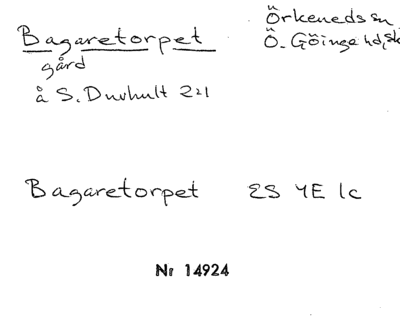 Bagaretorpet Örkeneds sn
gård Ö. Göinge hd, Sk
å S. Duvhult 2:1
Bagaretorpet ES 4E 1c
Nr 14924